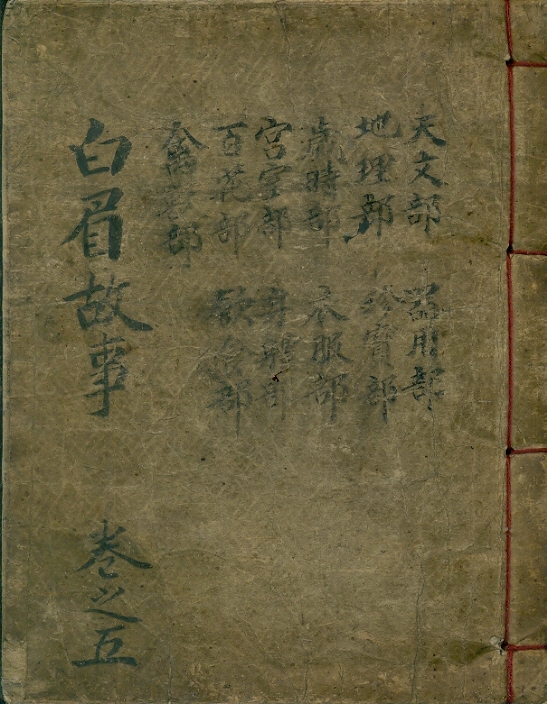 天文部 器用部
地理部 珍寶部
歲時部 衣服部
宮室部 身體部
百花部 飲食部
禽獸部
白眉故事 卷之五